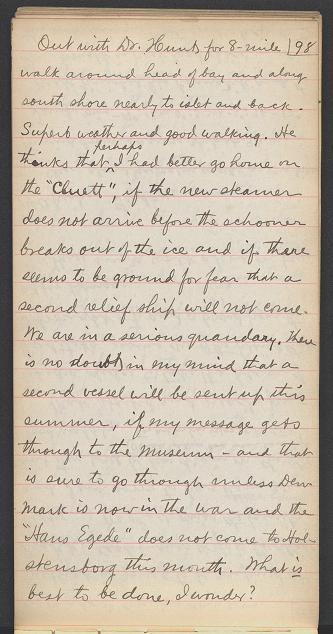 Out with Dr. Hunt for 8-mile 198
walk around head of bay and along
south shore nearly to islet and back.
Superb weather and good walking. He
perhaps
thinks that I had better go home on
the "Cluett", if the new steamer
does not arrive before the schooner
breaks out of the ice and if there
seems to be ground for fear that a
second relief ship will not come.
We are in a serious quandary. There
is no doubt in my mind that a
second vessel will be sent up this
summer, if my message gets
through to the Museum - and that
is sure to go through unless Den-
mark is now in the war and the
"Hans Egede" does not come to Hol-
stensborg this month. What is
best to be done, I wonder?